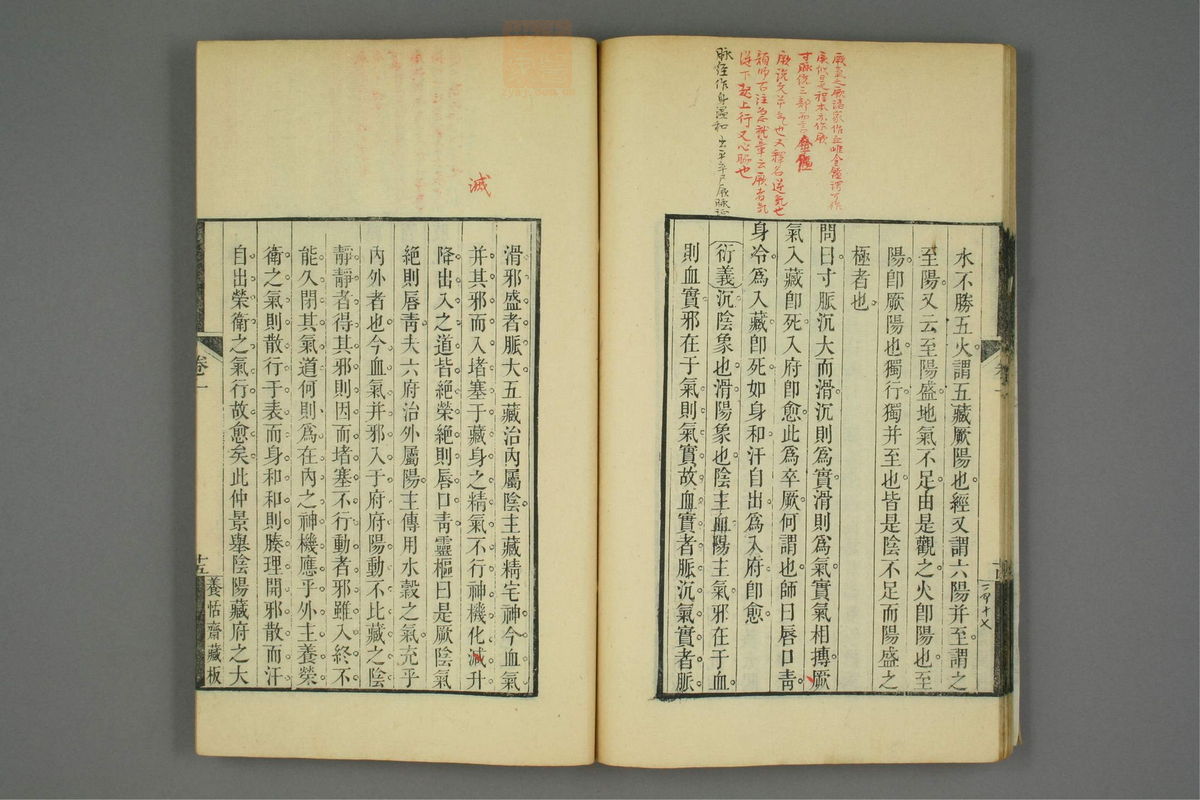 厥說文䒫气也又釋名逆气也
顏師古注急就章云厥者气
從下起上行叉心脇也
脉經作身溫和
水不勝五火謂五藏厥陽也經又謂六陽并至謂之
至陽又云至陽盛地氣不足由是觀之火卽陽也至
陽卽厥陽也獨行獨并至也皆是陰不足而陽盛之
極者也
問曰寸脈沉大而滑沉則爲實滑則爲氣實氣相摶厥
氣入藏卽死入府卽愈此爲卒厥何謂也師曰唇口靑
身冷爲入藏卽死如身和汗自出爲入府卽愈
衍義沉陰象也滑陽象也陰主血陽主氣邪在于血
則血實邪在于氣則氣實故血實者脈沉氣實者脈
滅
滑邪盛者脈大五藏治內屬陰主藏精宅神今血氣
并其邪而入堵塞于藏身之精氣不行神機化滅升
降出入之道皆絶榮絶則唇口靑靈樞曰是厥陰氣
絶則唇靑夫六府治外屬陽主傳用水穀之氣充乎
內外者也今血氣并邪入于府府陽動不比藏之陰
靜靜者得其邪則因而堵塞不行動者邪雖入終不
能久閉其氣道何則爲在內之神機應乎外主養榮
衛之氣則散行于表而身和和則腠理開邪散而汗
自出榮衛之氣行故愈矣此仲景舉陰陽藏府之大
卷一
十五
養恬齋藏板